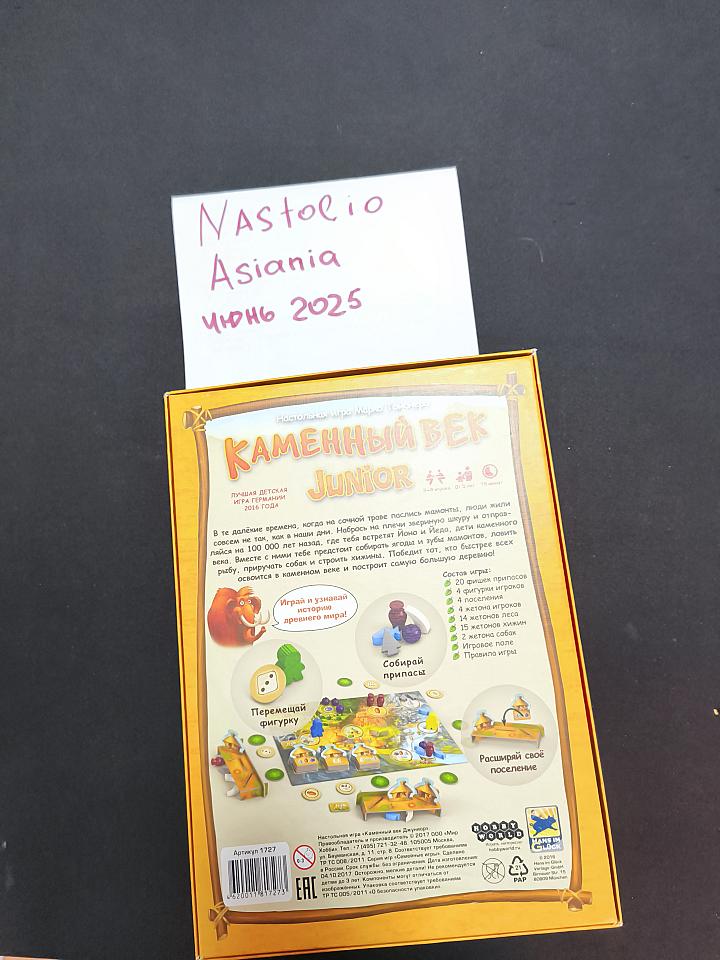 Nastolio
Asiania
июнь 2025
Настольная игра Марко Тойбнера
КАМЕННЫЙ ВЕК
JUNIOR
ЛУЧШАЯ ДЕТСКАЯ
ИГРА ГЕРМАНИИ
2016 ГОДА
В те далёкие времена, когда на сочной траве паслись мамонты, люди жили
совсем не так, как в наши дни. Набрось на плечи звериную шкуру и отправ-
ляйся на 100 000 лет назад, где тебя встретят Йоно и Йеда, дети каменного
века. Вместе с ними тебе предстоит собирать ягоды и зубы мамонтов, ловить
рыбу, приручать собак и строить хижины. Победит тот, кто быстрее всех
освоится в каменном веке и построит самую большую деревню!
Играй и узнавай
историю
древнего мира!
Состав игры:
20 фишек припасов
4 фигурки игроков
4 поселения
4 жетона игроков
14 жетонов леса
15 жетонов хижин
2 жетона собак
Игровое поле
Правила игры
Собирай
припасы
Перемещай
фигурку
Расширяй своё
поселение
Артикул 1727
4620011817273
0-3
EAC
Настольная игра «Каменный век Джуниор».
Правообладатель и производитель © 2017 ООО «Мир
Хобби». Тел.: +7 (495) 721-32-48. 105005 Москва,
ул. Бауманская, д. 11, стр. 8. Соответствует требованиям
ТР ТС 008/2011. Серия игр «Семейные игры». Сделано
в России. Срок службы: без ограничения. Дата изготовления:
04.10.2017. Осторожно, мелкие детали! Не рекомендуется
детям до 3 лет. Компоненты могут отличаться от
изображённых. Упаковка соответствует требованиям
ТР ТС 005/2011 «О безопасности упаковки».
HOBBY
WORLD
Играть интересно
hobbyworld.ru
HANS IM
GLÜCK
© 2016
Hans im Glück
Verlags-GmbH,
Birnauer Str. 15
80809 München
21
PAP